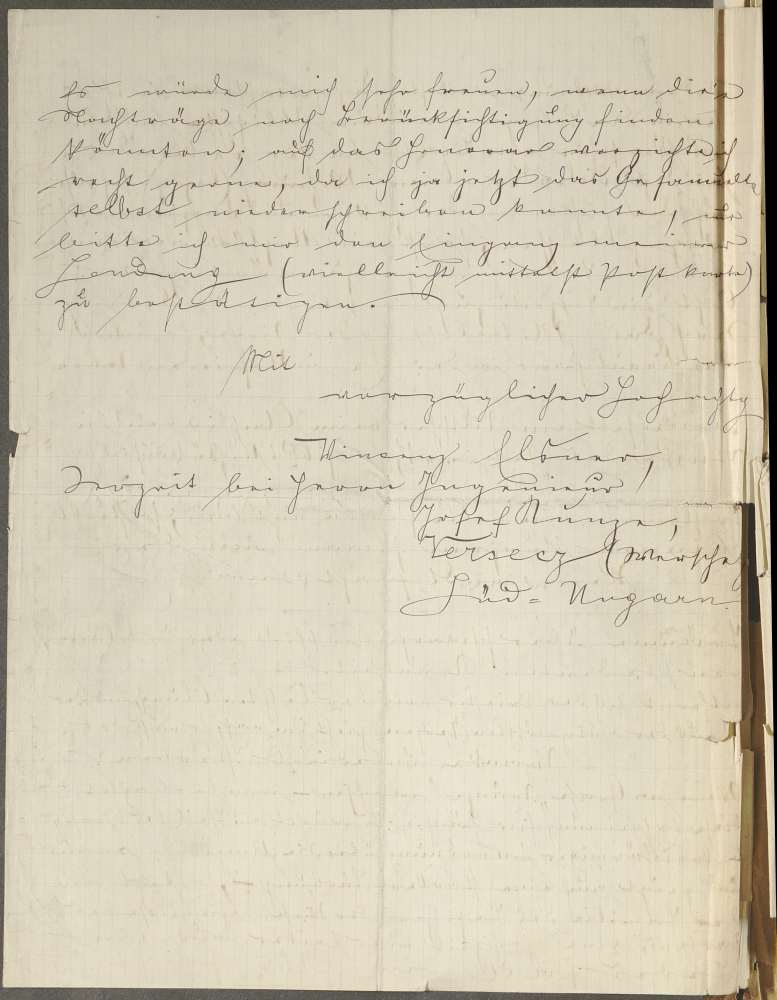 Es würde mich sehr freuen, wenn diese
Nachträge noch Berücksichtigung finden
könnten; auf das Honorar verzichte ich
recht gerne, da ich ja jetzt das Gesammelte
selbst niederschreiben konnte, nur
bitte ich mir den Eingang meiner
Sendung (vielleicht mittelst Postkarte)
zu bestätigen.
Mit
vorzüglicher Hochachtg
Vincenz Elsner,
derzeit bei Herrn Ingenieur
Josef Kunze,
Versecz (Werschetz
Süd-Ungarn.